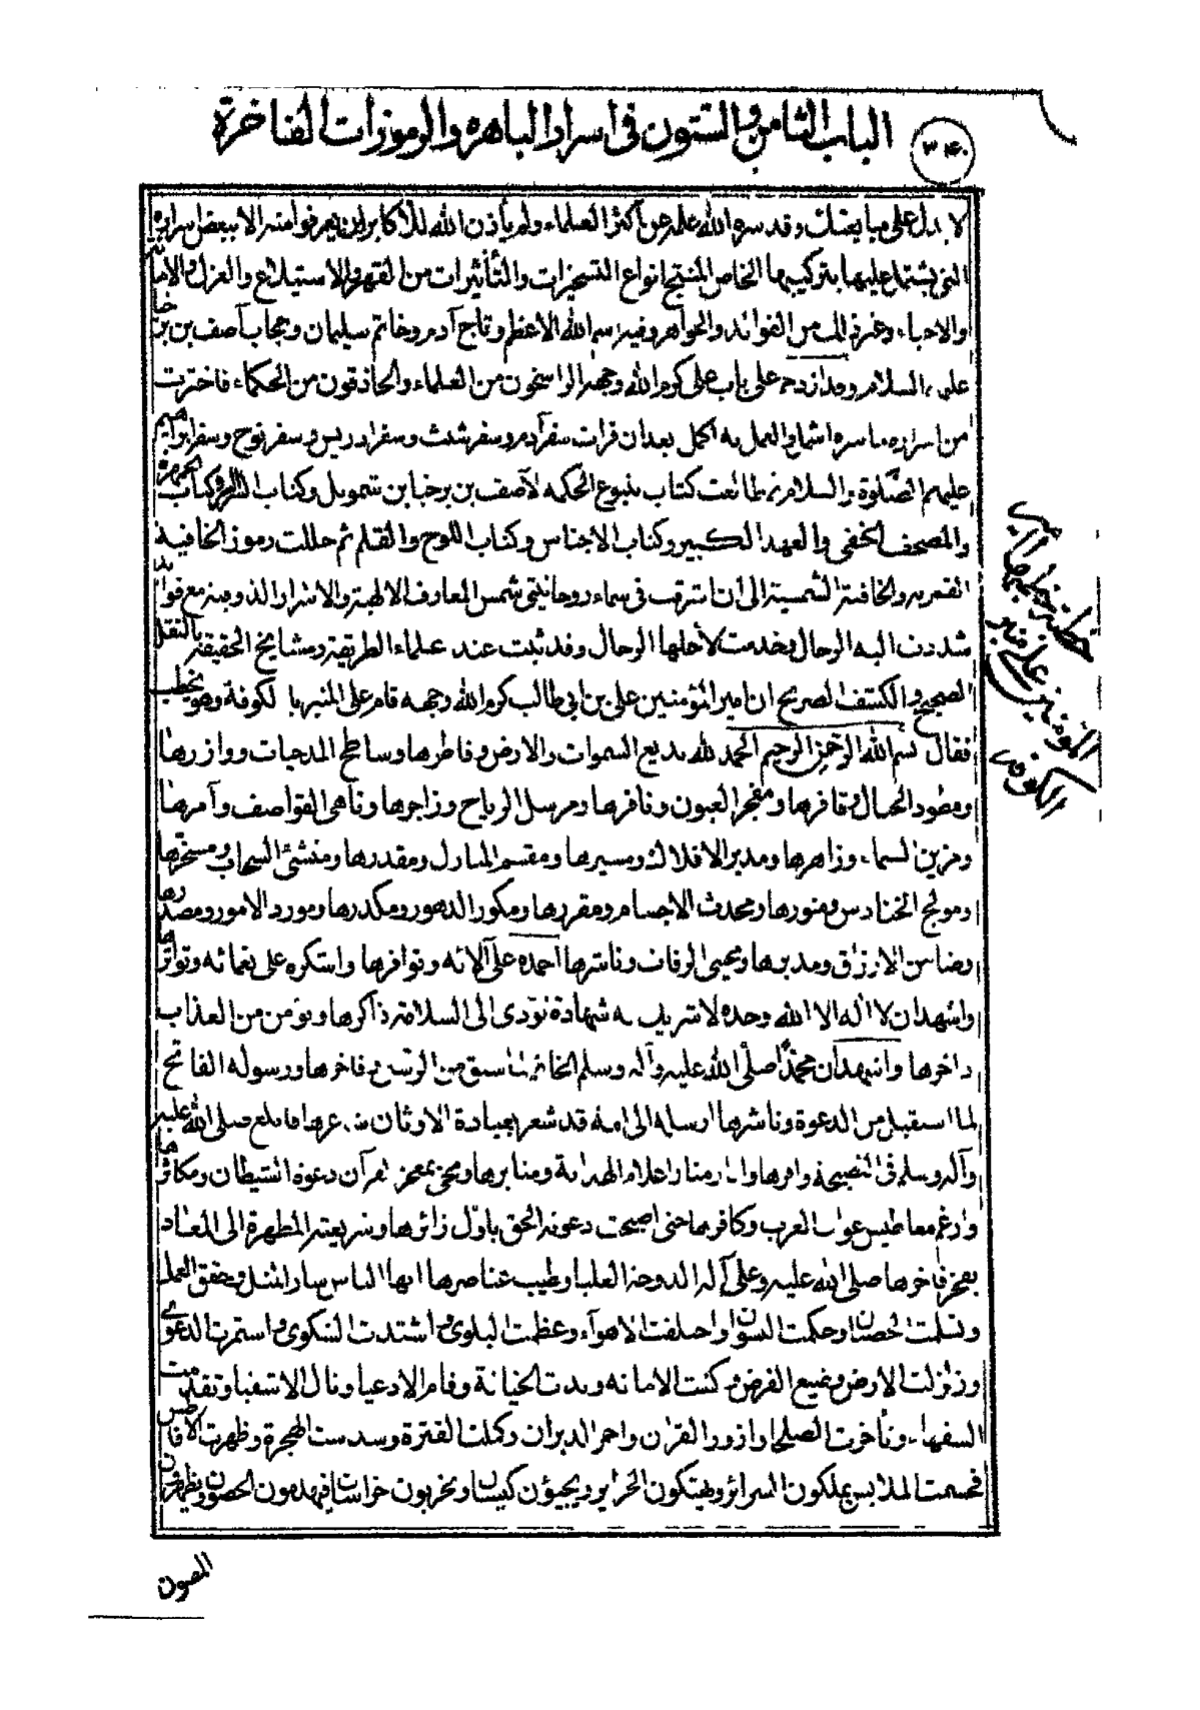 الباب الثامن والستون فى اسرار الباهره والرموزات الفاخرة
٣٤٠
لا يدل على ما يعنيك وقد ستره الله علمه عن أكثر العلماء ولم يأذن الله للاكابر ان يعرفوا منه الا ببعض اسراره
التى يشتمل عليها بتركيبها الخاص المنتج انواع التسخيرات والتأثيرات من القهر والاستيلاء والعزل والاماتة
والاحياء وغير ذلك من الفوائد والخواص وفيه اسم الله الاعظم وتاج آدم وخاتم سليمان وحجاب آصف بن برخيا
عليه السلام وقد ازدحم على باب على كرم الله وجهه الراسخون من العلماء والحاذقون من الحكماء فاخترت
من اسراره ما سره اشمل والعمل به اكمل بعد ان قرات سفر آدم وسفر شيث وسفر ادريس وسفر نوح وسفر ابراهيم
عليهم الصلوة والسلام ثم طالعت كتاب ينبوع الحكمه لآصف بن برخيا بن شمويل وكتاب السر وكتاب الجمهرة
والمصحف الخفى والعهد الكبير وكتاب الاجناس وكتاب اللوح والقلم ثم حللت رموز الخافية
القمريه والخافية الشمسية الى ان اشرقت فى سماء روحانيتى شمس المعارف الالهية والاسرار الذوقيه مع فوائد
شددت اليه الرحال بخدمت لأجلها الرجال وقد ثبت عند علماء الطريقة ومشايخ الحقيقة بالنقل
الصحيح والكشف الصريح ان امير المؤمنين على بن ابى طالب كرم الله وجهه قام على المنبر بالكوفة وهو يخطب
فقال بسم الله الرحمن الرحيم الحمد لله بديع السموات والارض وفاطرها وساطح المدحيات ووازرها
ومطود الجبال وقافرها ومفجر العيون ونافرها ومرسل الرياح وزاجرها وناهى القواصف وآمرها
ومزين السماء وزاهرها ومدبر الافلاك ومسيرها ومقسم المنازل ومقدرها ومنشئ السحاب ومسخرها
ومولج الحنادس ومنورها ومحدث الاجسام ومقررها ومكور الدهور ومكدرها ومورد الامور ومصدرها
وضامن الارزاق ومدبرها ومحيى الرفات وناشرها احمده على آلائه وتوافرها واشكره على نعمائه وتواترها
واشهد ان لا اله الا الله وحده لا شريك له شهادة تؤدى الى السلامة ذاكرها وتؤمن من العذاب
ذاخرها واشهد ان محمدا صلى الله عليه وآله وسلم الخاتم لما سبق من الرسل وفاخرها ورسوله الفاتح
لما استقبل من الدعوة وناشرها ارسله الى امة قد شعر بعبادة الاوثان شاعرها فابلغ صلى الله عليه
وآله وسلم فى النصيحة وافرها وانار منار اعلام الهداية ومنابرها ومحى بمعجز القرآن دعوة الشيطان ومكاثرها
وارغم معاطيس غواة العرب وكافرها حتى اصبحت دعوته الحق باول زائرها وشريعته المطهرة الى المعاد
يفخر فاخرها صلى الله عليه وعلى آله الدوحة العليا وطيب عناصرها ايها الناس سار المثل وحقق العمل
وتسلمت الخصيان وحكمت النسوان واختلفت الاهوآء وعظمت البلوى واشتدت الشكوى واستمرت الدعوى
وزلزلت الارض وضيع الفرض وكتمت الامانه وبدت الخيانة وقام الادعيا ونال الاشقيا وتقدمت
السفهاء وتأخرت الصلحا وازور القران واحمر الدبران وكملت الفترة وسدست الهجرة وظهرت الافاطس
فحسمت الملابس يملكون السرائر ويهتكون الحرائر ويجيؤن كيسان ويخربون خراسان فيهدمون الحصون ويظهرون
المصون
خطبة
امير
المؤمنين على
منبر
الكوفه